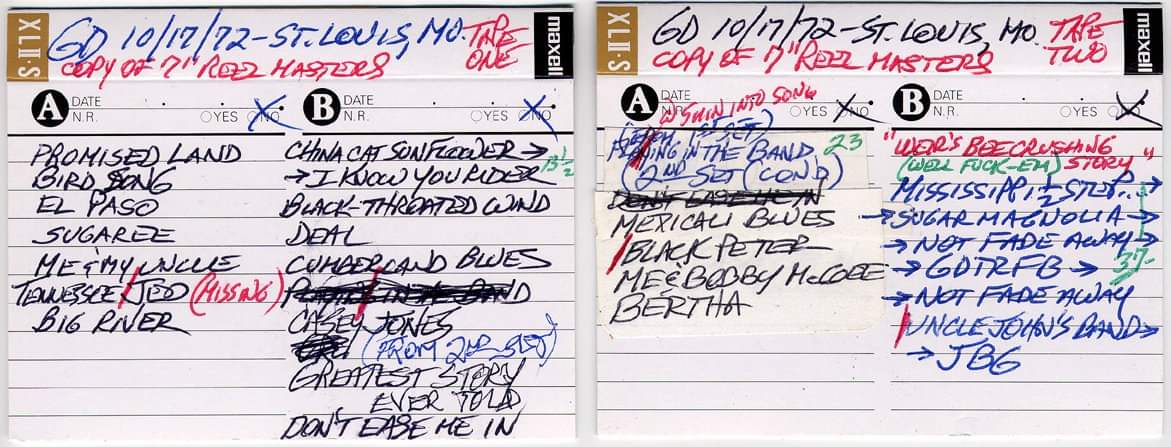 XLII·S
GD 10/17/72 - ST. LOUIS, MO.
TAPE ONE
COPY OF 7" REEL MASTERS
maxell
A DATE
N.R.
YES NO
PROMISED LAND
BIRD SONG
EL PASO
SUGAREE
ME & MY UNCLE
TENNESSEE JED (MISSING)
BIG RIVER
B DATE
N.R.
YES NO
CHINA CAT SUNFLOWER →
→ I KNOW YOU RIDER
13 1/2
BLACK-THROATED WIND
DEAL
CUMBERLAND BLUES
PLAYING IN THE BAND
CASEY JONES
(FROM 2ND SET)
GREATEST STORY
EVER TOLD
DON'T EASE ME IN
XLII·S
GD 10/17/72 - ST. LOUIS, MO.
TAPE TWO
COPY OF 7" REEL MASTERS
maxell
A DATE
N.R.
YES NO
INTO SONG
(FROM 1ST SET)
PLAYING IN THE BAND 23
(2ND SET (COND)
DON'T EASE ME IN
MEXICALI BLUES
BLACK PETER
ME & BOBBY McGEE
BERTHA
B DATE
N.R.
YES NO
"WEIR'S BEE CRUSHING
(WELL FUCK-EM) STORY"
MISSISSIPPI 1/2 STEP →
→ SUGAR MAGNOLIA →
→ NOT FADE AWAY →
→ GDTRFB →
→ NOT FADE AWAY
UNCLE JOHN'S BAND →
→ JBG